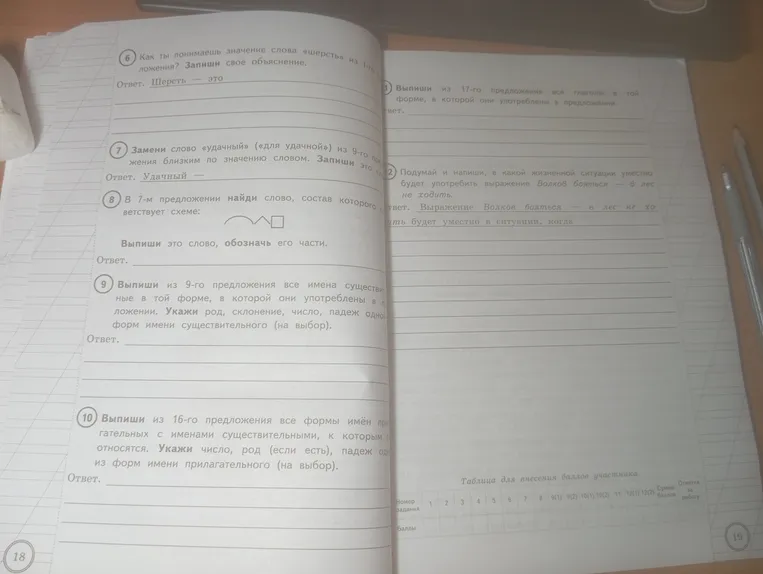 6 Как ты понимаешь значение слова «шерсть» из
ложения? Запиши свое объяснение.
Ответ. Шерсть — это
7 Замени слово «удачный» («для удачной») из 9-го
жения близким по значению словом. Запиши
Ответ. Удачный —
8 В 7-м предложении найди слово, состав которого
ветствует схеме:
Выпиши это слово, обозначь его части.
Ответ.
9 Выпиши из 9-го предложения все имена существ
ные в той форме, в которой они употреблены в
ложении. Укажи род, склонение, число, падеж одной
форм имени существительного (на выбор).
Ответ.
10 Выпиши из 16-го предложения все формы имён
гательных с именами существительными, к которым
относятся. Укажи число, род (если есть), падеж
из форм имени прилагательного (на выбор).
Ответ.
18
Выпиши из 17-го предложения все глаголы в той
форме, в которой они употреблены в предложении.
вет.
2 Подумай и напиши, в какой жизненной ситуации уместно
будет употребить выражение Волков бояться — в лес
не ходить.
твет. Выражение Волков бояться — в лес не хо
ить будет уместно в ситуации, когда
Таблица для внесения баллов участника
Номер задания 1 2 3 4 5 6 7 8 9(1) 9(2) 10(1) 10(2) 11 12(1) 12(2)
Баллы
19